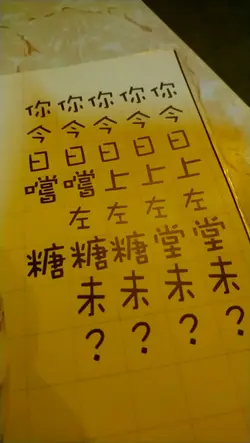 你今日上左堂未？
你今日上左堂未？
你今日上左糖未？
你今日嚐左糖未？
你今日嚐糖